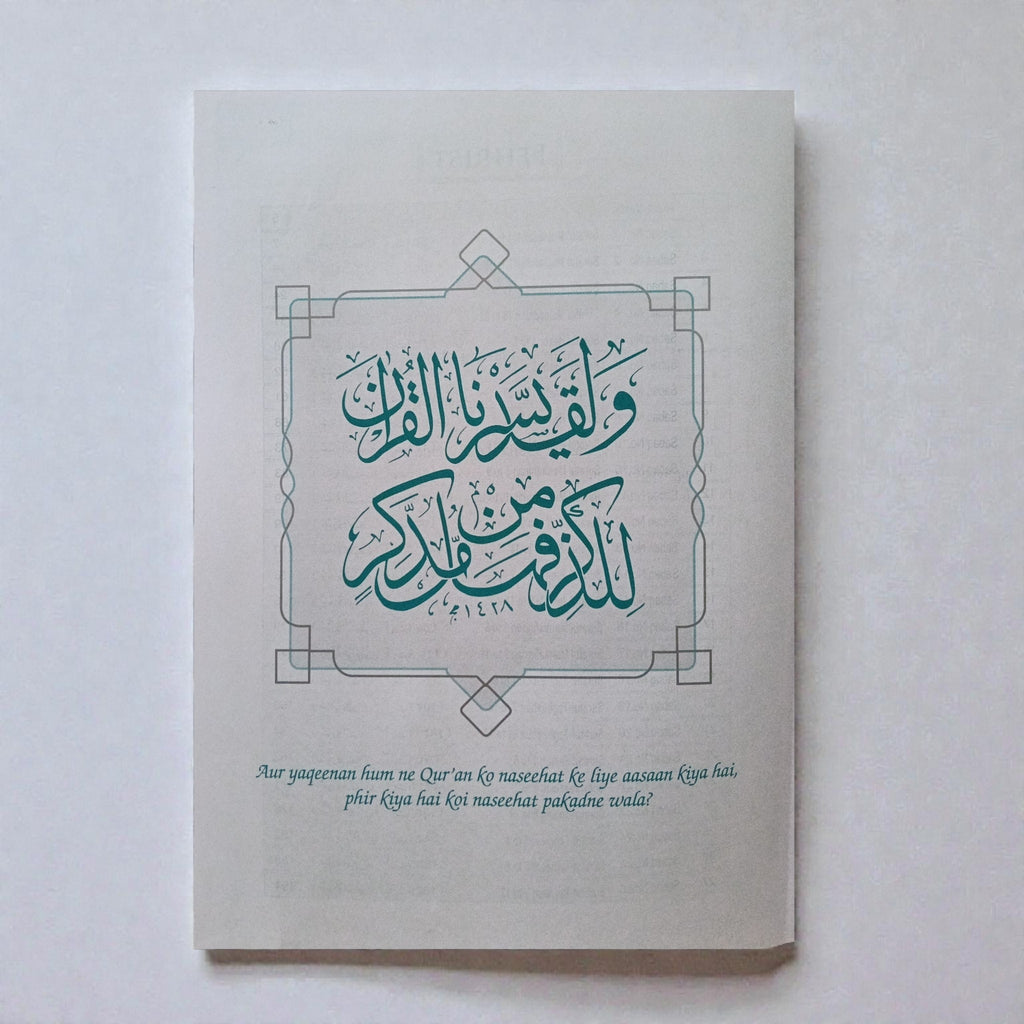 وَلَقَدْ يَسَّرْنَا الْقُرْآنَ
لِلذِّكْرِ فَهَلْ مِن مُّدَّكِرٍ
١٤٢٨
Aur yaqeenan hum ne Qur'an ko naseehat ke liye aasaan kiya hai,
phir kiya hai koi naseehat pakadne wala?